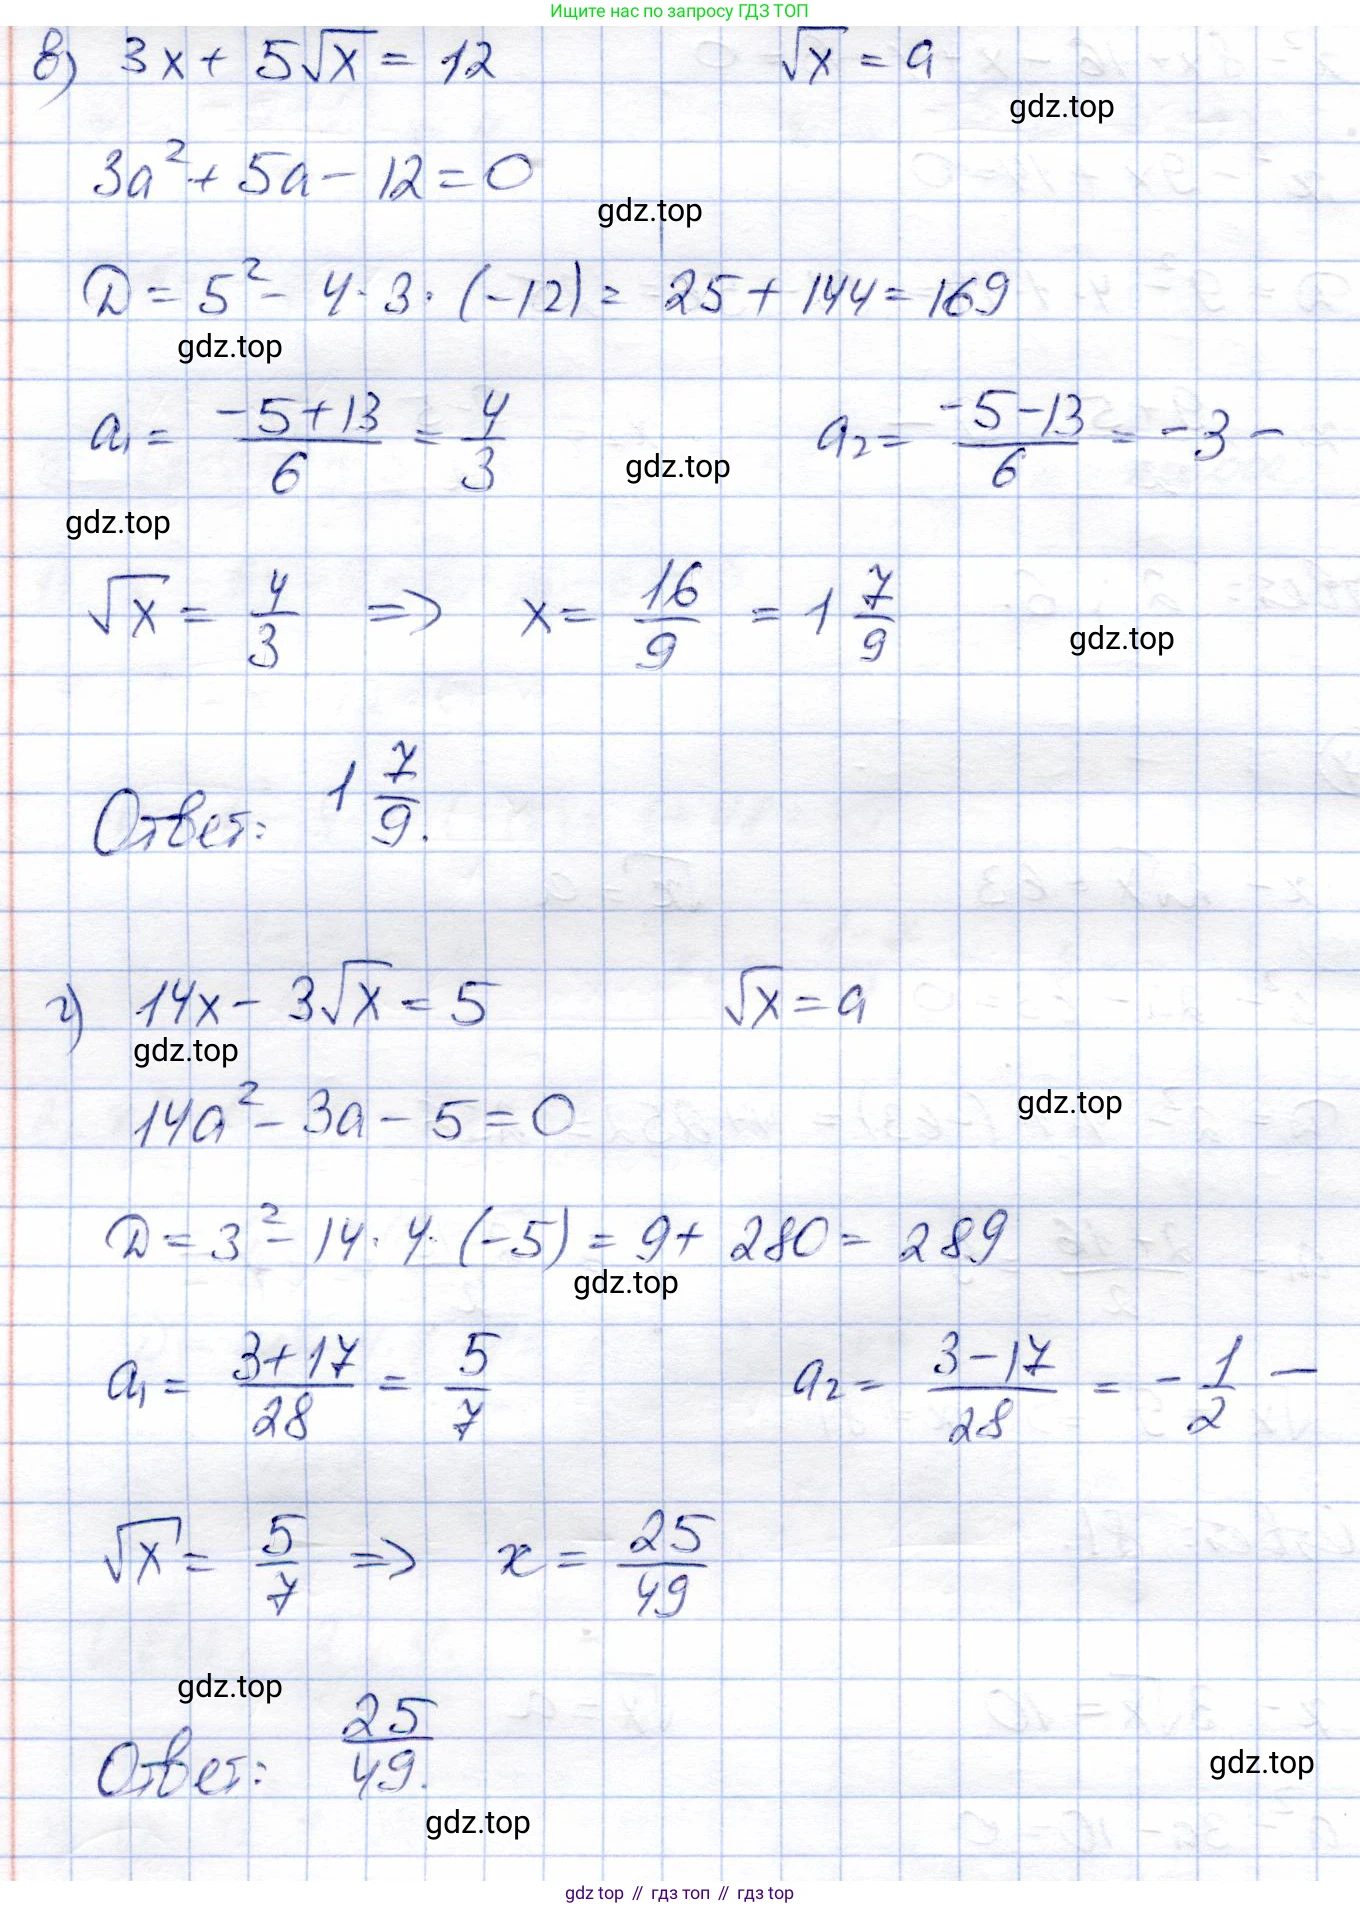 Ищите нас по запросу ГДЗ ТОП
в) 3x + 5√x = 12 √x = a
gdz.top
3a² + 5a - 12 = 0
gdz.top
D = 5² - 4 · 3 · (-12) = 25 + 144 = 169
gdz.top
a₁ = (-5+13)/6 = 4/3 a₂ = (-5-13)/6 = -3 -
gdz.top
gdz.top
√x = 4/3 => x = 16/9 = 1 7/9
gdz.top
Ответ: 1 7/9.
г) 14x - 3√x = 5 √x = a
gdz.top
14a² - 3a - 5 = 0
gdz.top
D = 3² - 14 · 4 · (-5) = 9 + 280 = 289
gdz.top
a₁ = (3+17)/28 = 5/7 a₂ = (3-17)/28 = -1/2 -
√x = 5/7 => x = 25/49
gdz.top
Ответ: 25/49.
gdz.top
gdz.top
gdz top // гдз топ // гдз top